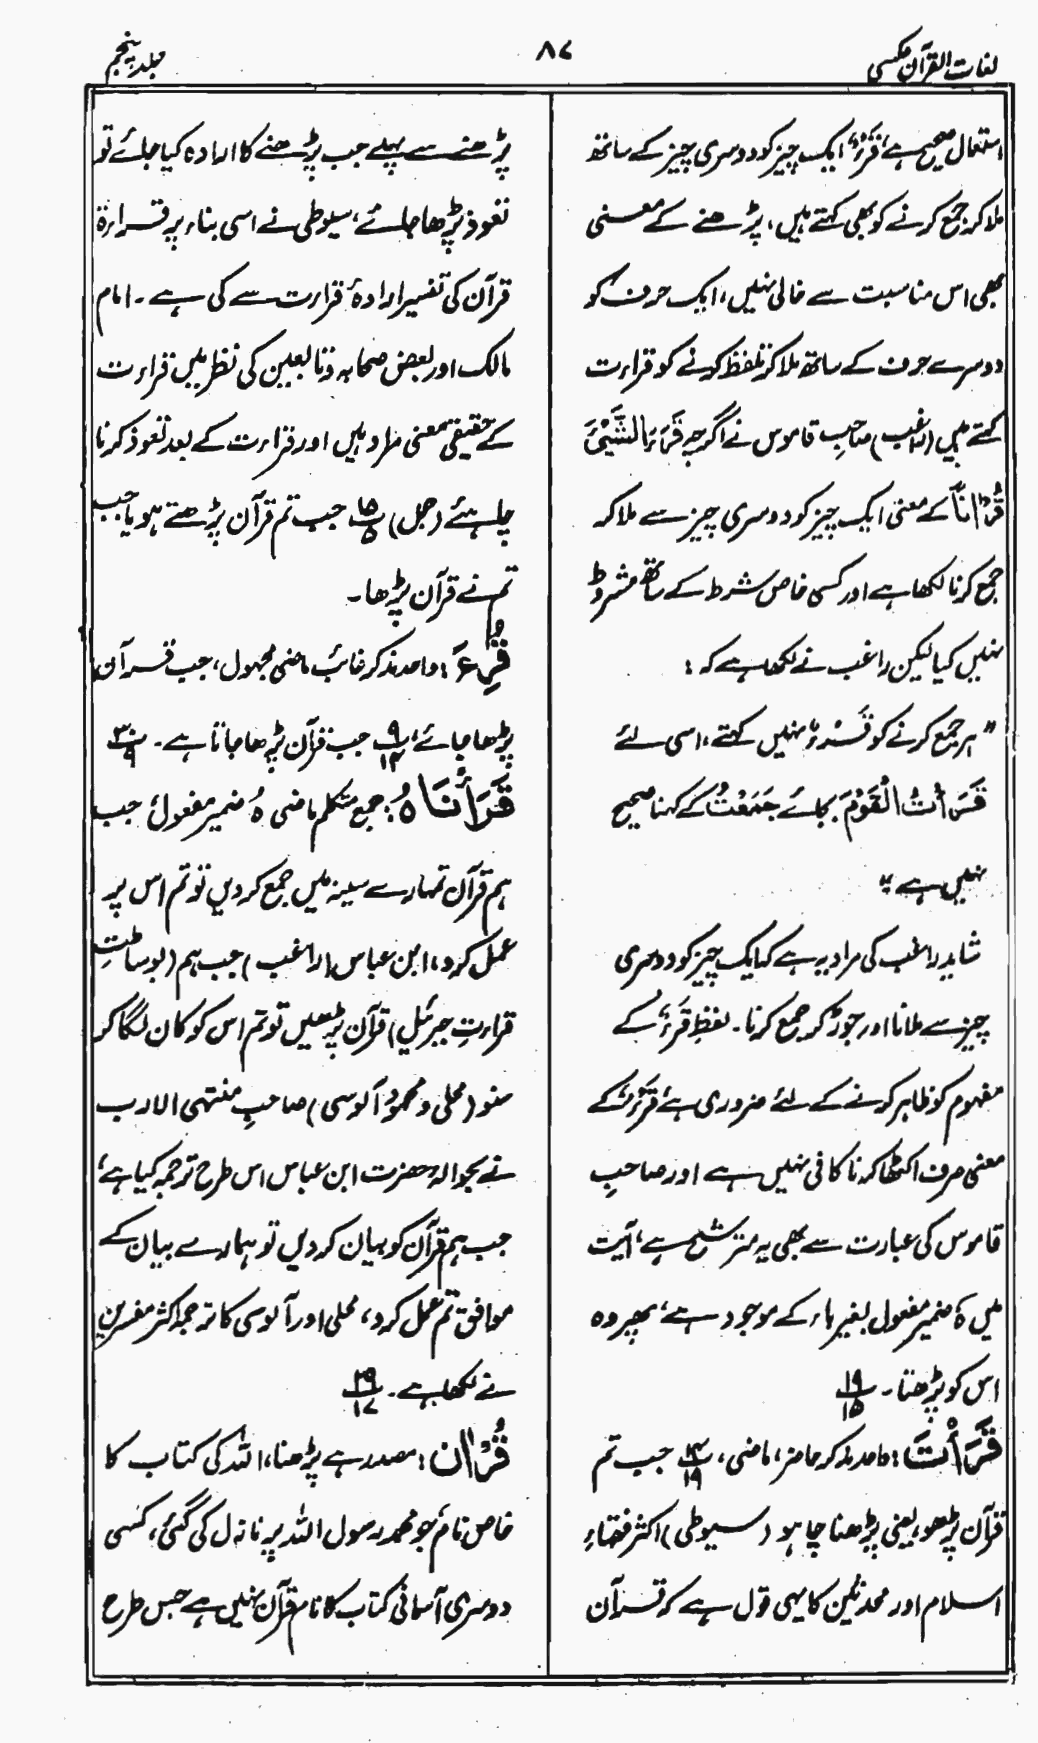 لغات القرآن عکسی
۸۷
جلد پنجم
استعمال صحیح ہے، قَرْءٌ ایک چیز کو دوسری چیز کے ساتھ
ملا کر جمع کرنے کو بھی کہتے ہیں، پڑھنے کے معنی
بھی اس مناسبت سے خالی نہیں، ایک حرف کو
دوسرے حرف کے ساتھ ملا کر تلفظ کرنے کو قراءت
کہتے ہیں (راغب) صاحبِ قاموس نے اگرچہ قَرَءَ الشَّیْئَ
قُرْاٰناً کے معنی ایک چیز کو دوسری چیز سے ملا کر
جمع کرنا لکھا ہے اور کسی خاص شرط کے ساتھ مشروط
نہیں کیا لیکن راغب نے لکھا ہے کہ :
" ہر جمع کرنے کو قَرْءٌ نہیں کہتے، اسی لئے
قَرَأْتُ الْقَوْمَ بجائے جَمَعْتُ کے کہنا صحیح
نہیں ہے "
شاید راغب کی مراد یہ ہے کہ ایک چیز کو دوسری
چیز سے ملانا اور جوڑ کر جمع کرنا۔ لفظ قَرْءٌ کے
مفہوم کو ظاہر کرنے کے لئے ضروری ہے، قَرْءٌ کے
معنی صرف اکٹھا کرنا کافی نہیں ہے اور صاحبِ
قاموس کی عبارت سے بھی یہ مترشح ہے، آیت
میں ہٗ ضمیر مفعول بغیر باء کے موجود ہے، پھر وہ
اس کو پڑھتا۔ ۱۹/۱۵
قَرَأْتَ : واحد مذکر حاضر، ماضی، ۱۴/۱۹ جب تم
قرآن پڑھو، یعنی پڑھنا چاہو (سیوطی) اکثر فقہاءِ
اسلام اور محدثین کا یہی قول ہے کہ قرآن
پڑھنے سے پہلے جب پڑھنے کا ارادہ کیا جائے تو
تعوذ پڑھا جائے، سیوطی نے اسی بناء پر قراءۃ
قرآن کی تفسیر ارادۂ قراءت سے کی ہے۔ امام
مالک اور بعض صحابہ و تابعین کی نظر میں قراءت
کے حقیقی معنی مراد ہیں اور قراءت کے بعد تعوذ کرنا
چاہئے (جمل) ۱۵/۵ جب تم قرآن پڑھتے ہو یا جب
تم نے قرآن پڑھا۔
قُرِءَ : واحد مذکر غائب ماضی مجہول، جب قرآن
پڑھا جائے، ۹/۱۴ جب قرآن پڑھا جاتا ہے۔ ۳۰/۹
قَرَأْنَاہُ : جمع متکلم ماضی ہُ ضمیر مفعول، جب
ہم قرآن تمہارے سینہ میں جمع کر دیں تو تم اس پر
عمل کرو، ابن عباس (راغب) جب ہم (بوساطتِ
قراءتِ جبرئیل) قرآن پڑھیں تو تم اس کو کان لگا کر
سنو (محلی و محمود آلوسی) صاحبِ منتہی الارب
نے بحوالۂ حضرت ابن عباس اس طرح ترجمہ کیا ہے،
جب ہم قرآن کو بیان کر دیں تو ہمارے بیان کے
موافق تم عمل کرو، محلی اور آلوسی کا ترجمہ اکثر مفسرین
نے لکھا ہے۔ ۲۹/۱۷
قُرْاٰن : مصدر ہے پڑھنا، اللہ کی کتاب کا
خاص نام جو محمد رسول اللہ پر نازل کی گئی، کسی
دوسری آسمانی کتاب کا نام قرآن نہیں ہے جس طرح